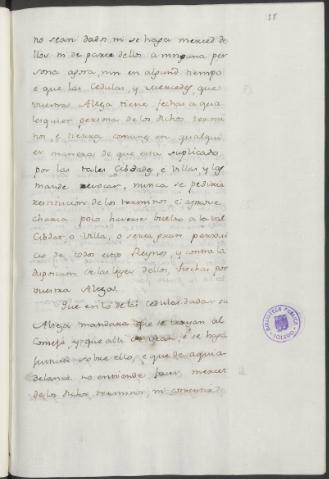 38
no sean dados, ni se haga merced de
llos ni de parte dellos a ninguna per
sona agora, nin en algund tiempo
e que las cedulas, y mercedes, que
vuestra Alteza tiene fechas a qua
lesquier persona de los dichos termi
nos, e tierra comunes en qualqui
er manera de que esta suplicado
por las tales Cibdades, e Villas, y las
mande revocar, nunca se pediria
restitucion de los terminos, si aprove
charia pues haverse buelto a la tal
Cibdad, o Villa, o seria gran perxui
cio de todos estos Reynos, y contra la
disposicion de las leyes dellos, fechas por
vuestra Alteza.
Que en lo de las cedulas dadas su
Alteza mandara que se trayan al
Consejo, y que alli se vean, e se haga
justicia sobre ello, e que de aqui a
delante no entiende facer merced
de los dichos terminos, ni consentir
BIBLIOTECA PUBLICA
TOLEDO